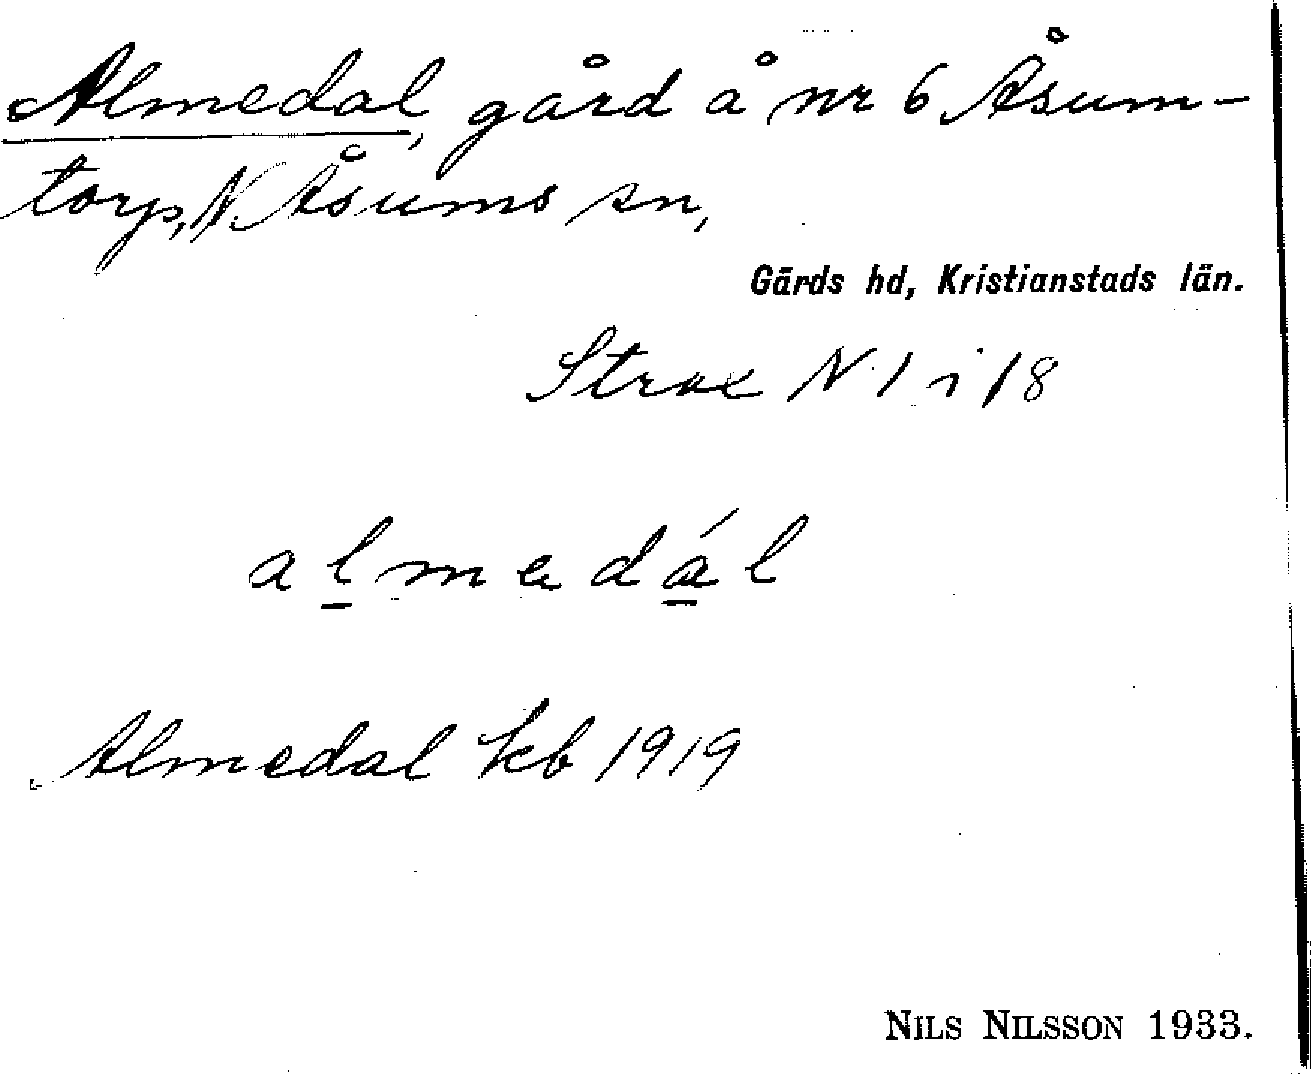 Almedal, gård å nr 6 Åsum-
torp, N. Åsums sn,
Gärds hd, Kristianstads län.
Strax N. 1 i 18
almedál
Almedal kb 1919
NILS NILSSON 1933.